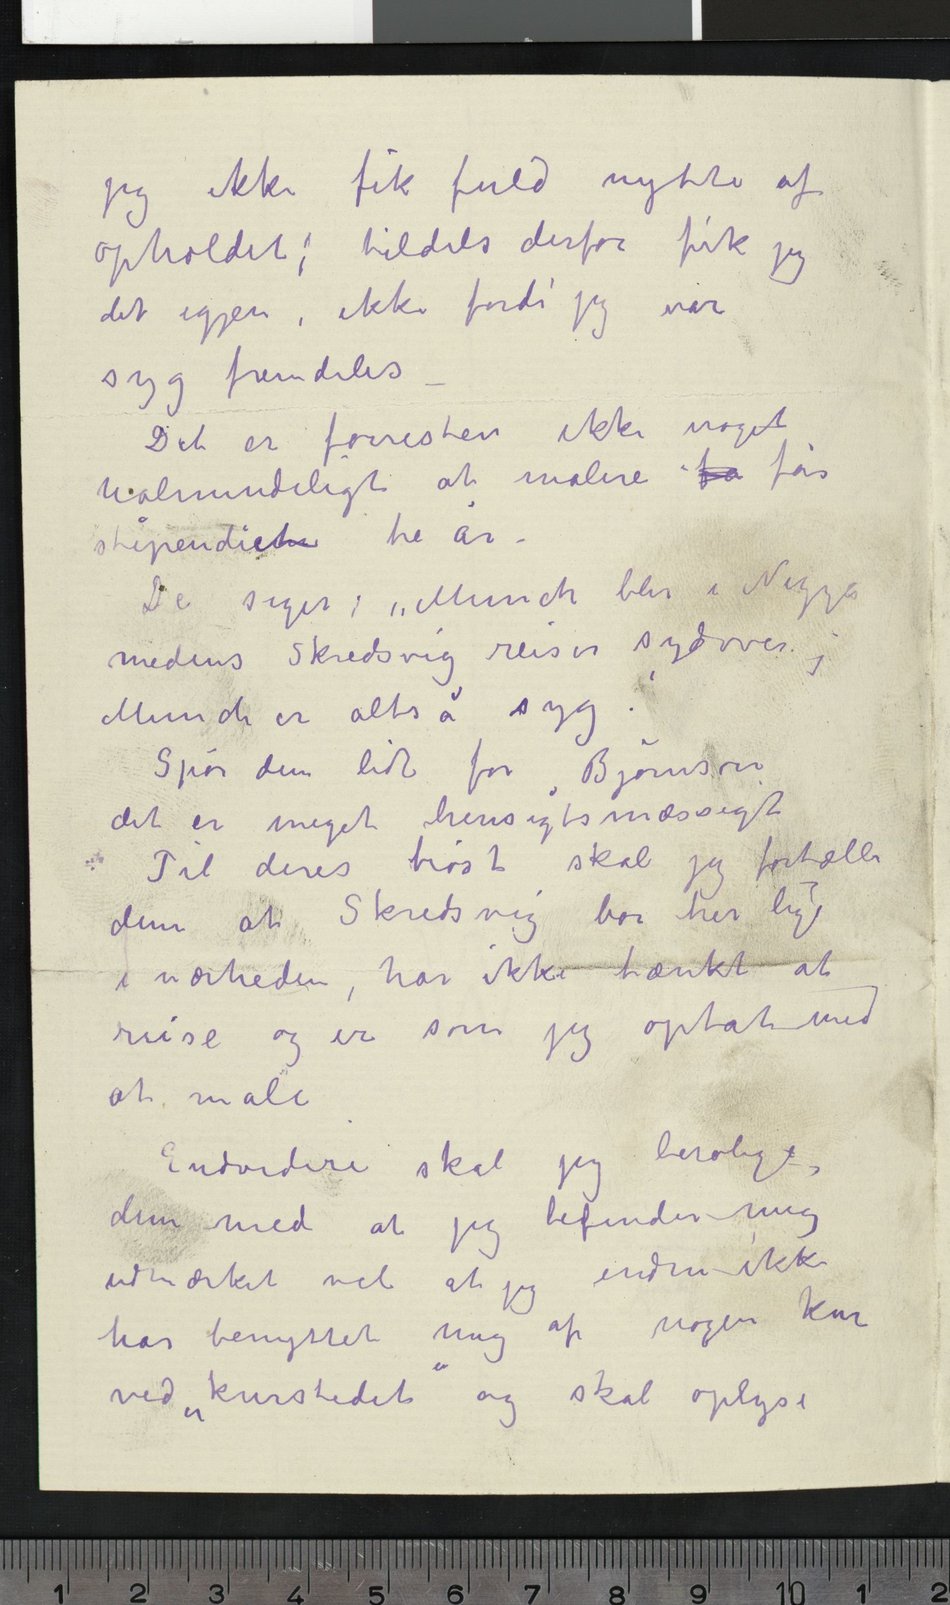 jeg ikke fik fuld nytte af
opholdet; tildels derfor fik jeg
det igjen, ikke fordi jeg var
syg fremdeles –
Det er forresten ikke noget
ualmindeligt at malere fa får
stipendiet tre år –
De siger; „Munch blir i Nizza
medens Skredsvig reiser sydover;
Munch er altså syg.
Spør dem lidt for Bjørnson
det er meget hensigtsmæssigt
Til deres trøst skal jeg fortælle
dem at Skredsvig bor her lige
i nærheden, har ikke tænkt at
reise og er som jeg optat med
at male
Endvidere skal jeg berolige
dem med at jeg befinder mig
udmærket vel at jeg endnu ikke
har benyttet mig af nogen kur
ved „kurstedet“ og skal oplyse
1 2 3 4 5 6 7 8 9 10 1 2